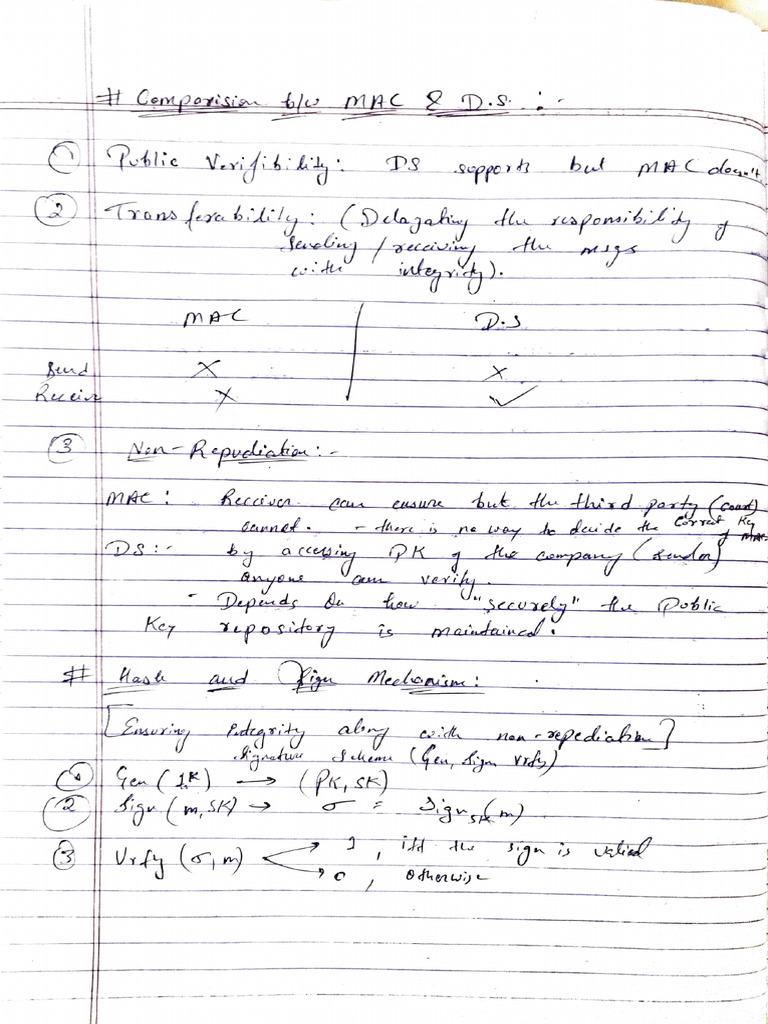 # Comparision b/w MAC & D.S. :-
① Public Verifibility: DS supports but MAC doesn't
② Transferability: (Delagating the responsibility of
sending / receiving the msgs
with integrity).
MAC | D.S
Send X X
Receive X ✓
③ Non-Repudiation:-
MAC: Receiver can ensure but the third party (court)
cannot. - there is no way to decide the correct key of MAC
DS:- by accessing PK of the company (sender)
anyone can verify.
- Depends on how "securely" the public
key repository is maintained.
# Hash and Sign Mechanism:
[Ensuring integrity along with non-repediation]
Signature Scheme (Gen, Sign, Vrfy)
① Gen (1^K) → (PK, SK)
② Sign (m, SK) → σ = Sign_SK(m)
③ Vrfy (σ, m) 1, iff the sign is valied
0, otherwise